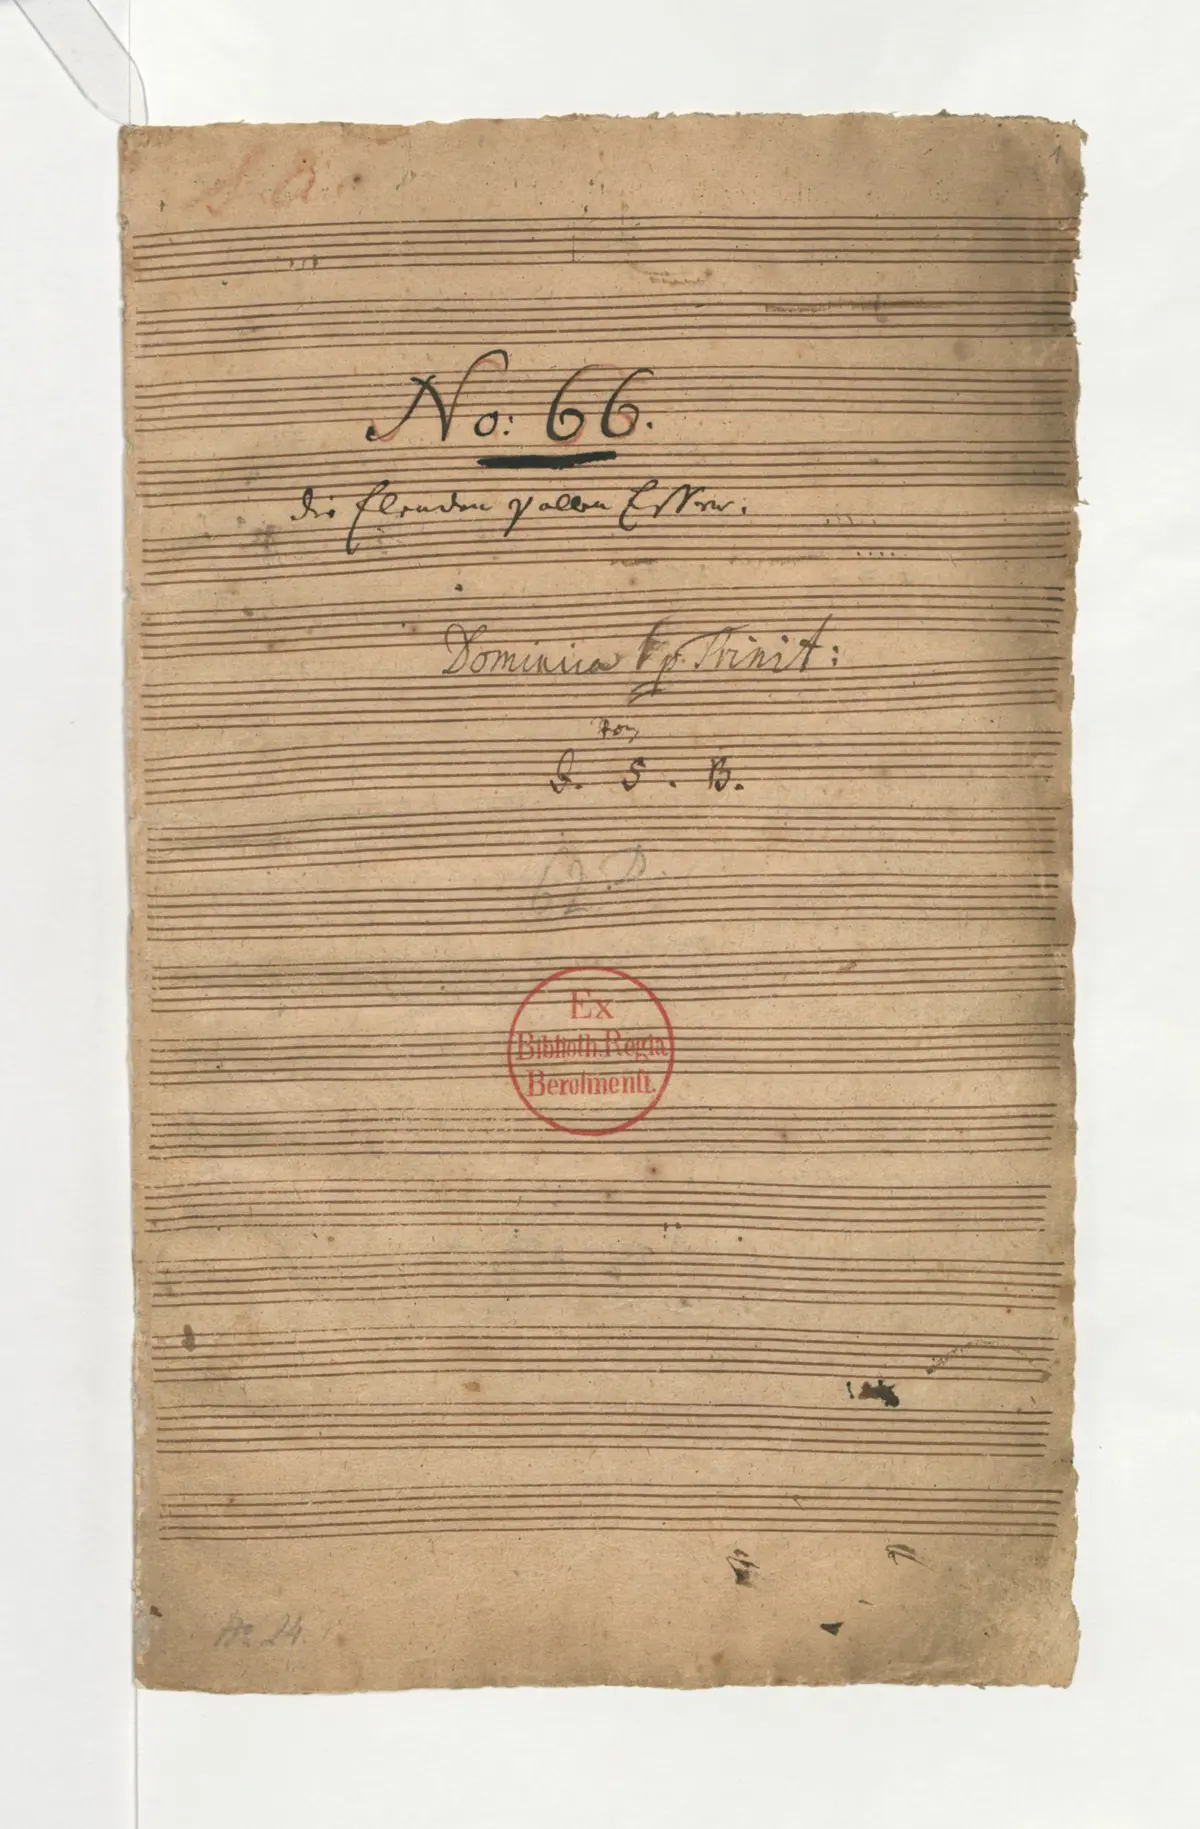 S. A.
1
No: 66.
die Elenden sollen Essen.
Dominica 1 p. Trinit:
von
J. S. B.
62. P.
Ex
Biblioth. Regia
Berolinenſi.
24.